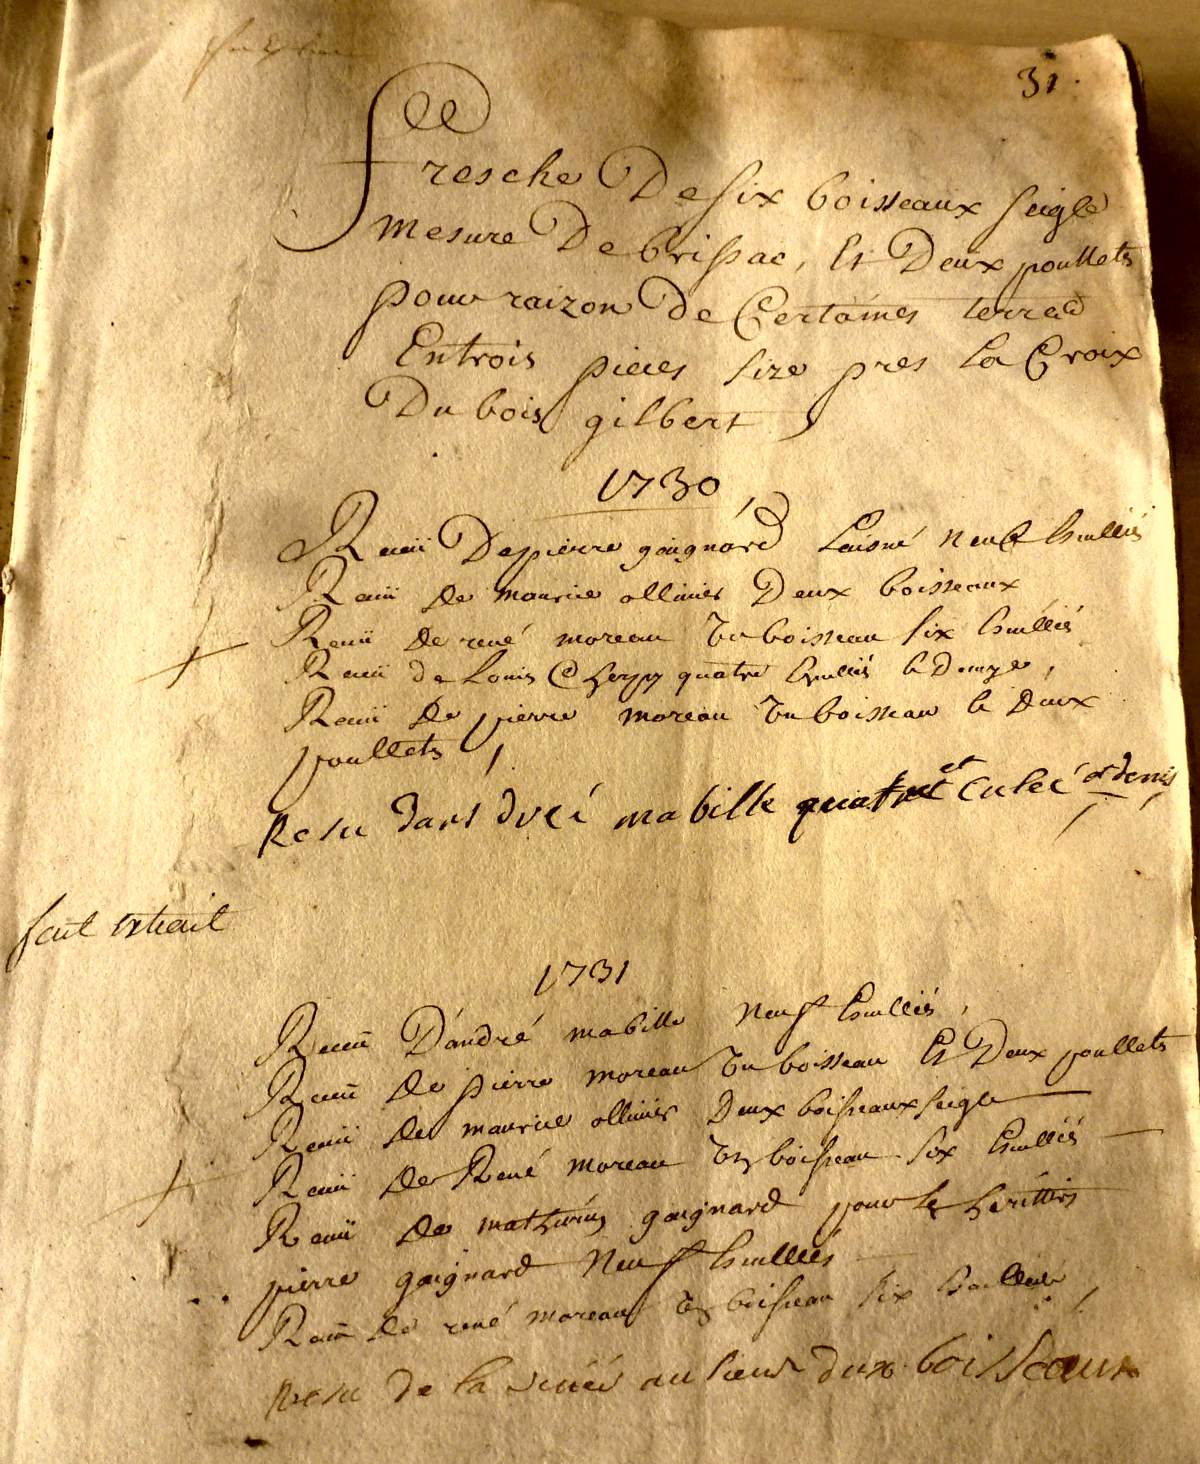 31
fresche De six boisseaux seigle
mesure De brissac, Et Deux poullets
pour raizon De Certaines terres
En trois pieces size pres la Croix
Du bois gilbert
1730
Receu De pierre gaignard Laisné neuf Esculleés
Receu de maurice ollivier Deux boisseaux
Receu de rené moreau Un boisseau six Esculleés
Receu de Louis quatre Esculleés
Receu de pierre moreau Un boisseau Deux
poullets
Resu dandréé mabille
fait extrait
1731
Receu D'andré mabille neuf Esculleés
Receu de pierre moreau Un boisseau Et Deux poullets
Receu de maurice ollivier Deux boisseaux seigle
Receu de René moreau Un boisseau six Esculleés
Receu de mathurin gaignard pour les herittiers
pierre gaignard neuf Esculleés
Receu de rené moreau Un boisseau six Esculleés
Resu de la au lieur deux boisseaux